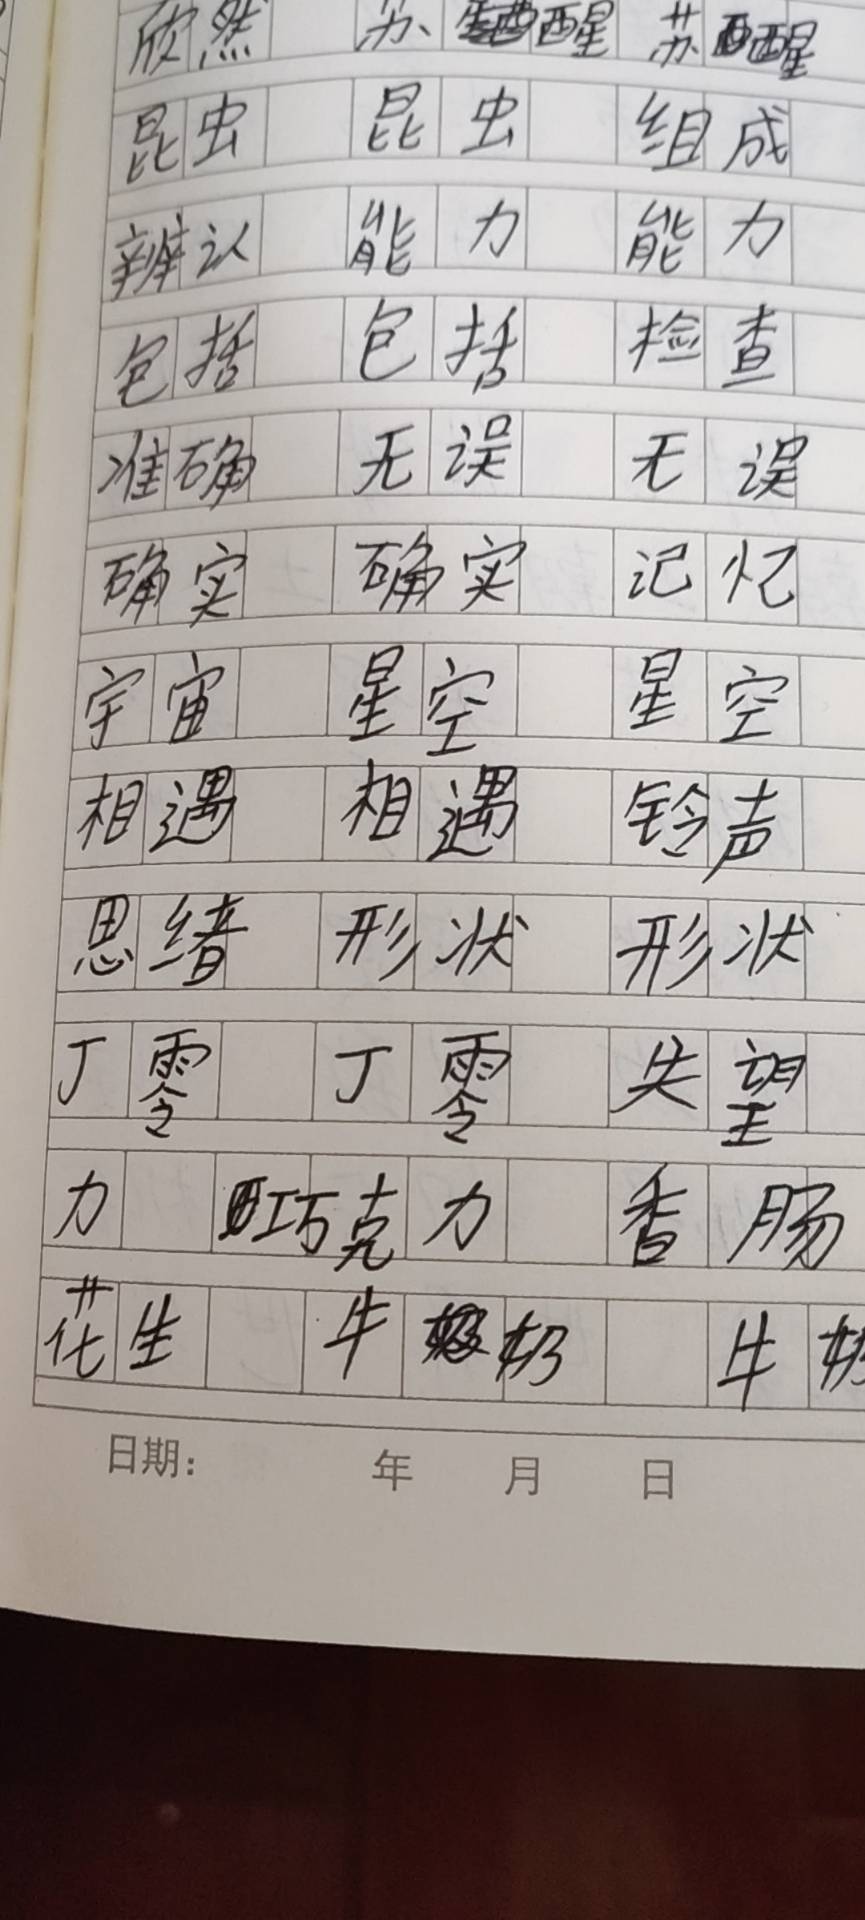 欣然 苏醒 苏醒
昆虫 昆虫 组成
辨认 能力 能力
包括 包括 检查
准确 无误 无误
确实 确实 记忆
宇宙 星空 星空
相遇 相遇 铃声
思绪 形状 形状
丁零 丁零 失望
力 巧克力 香肠
花生 牛奶 牛奶
日期： 年 月 日